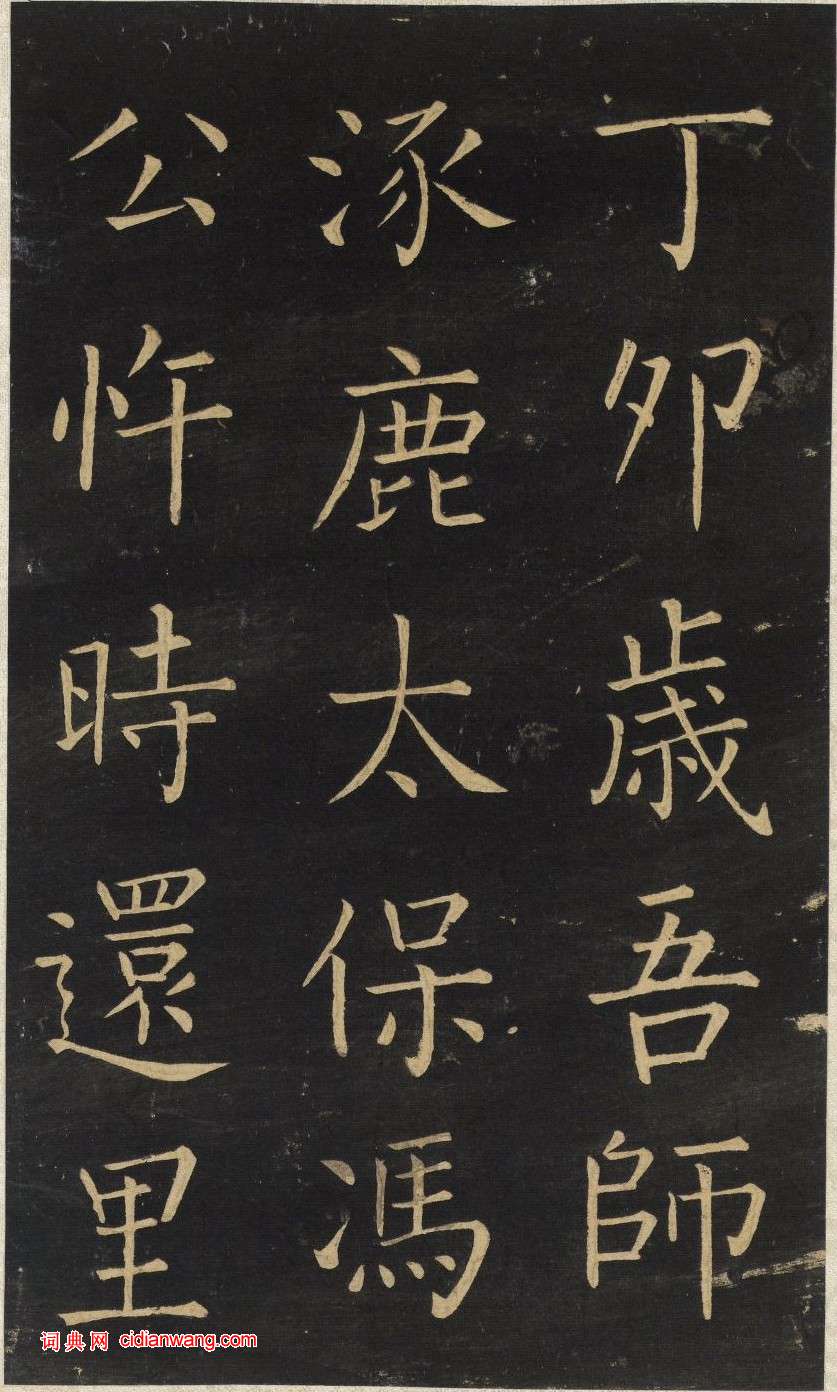 丁卯歲吾師
涿鹿太保馮
公忤時還里
词典网 cidianwang.com